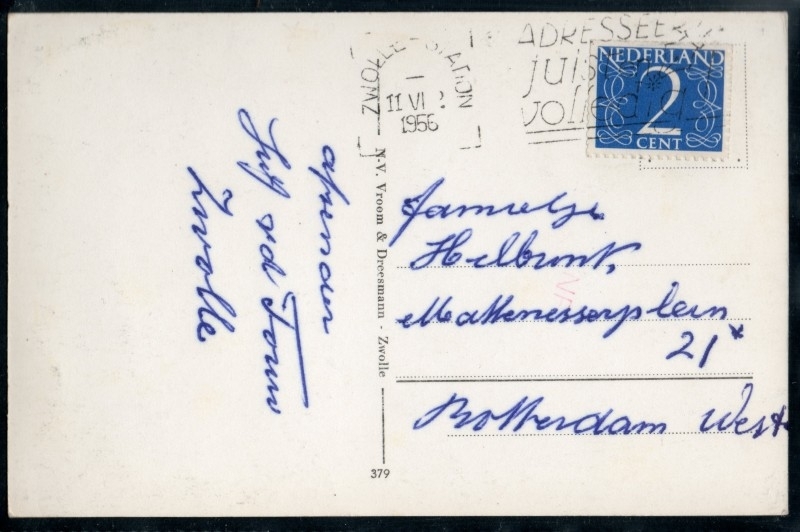 ZWOLLE - STATION
11 VI
1956
ADRESSEER
juist
volledig
NEDERLAND
2
CENT
afzender
Juf vd Touw
Zwolle
N.V. Vroom & Dreesmann - Zwolle
379
Helbrink,
Mathenesserplein
21
Rotterdam West